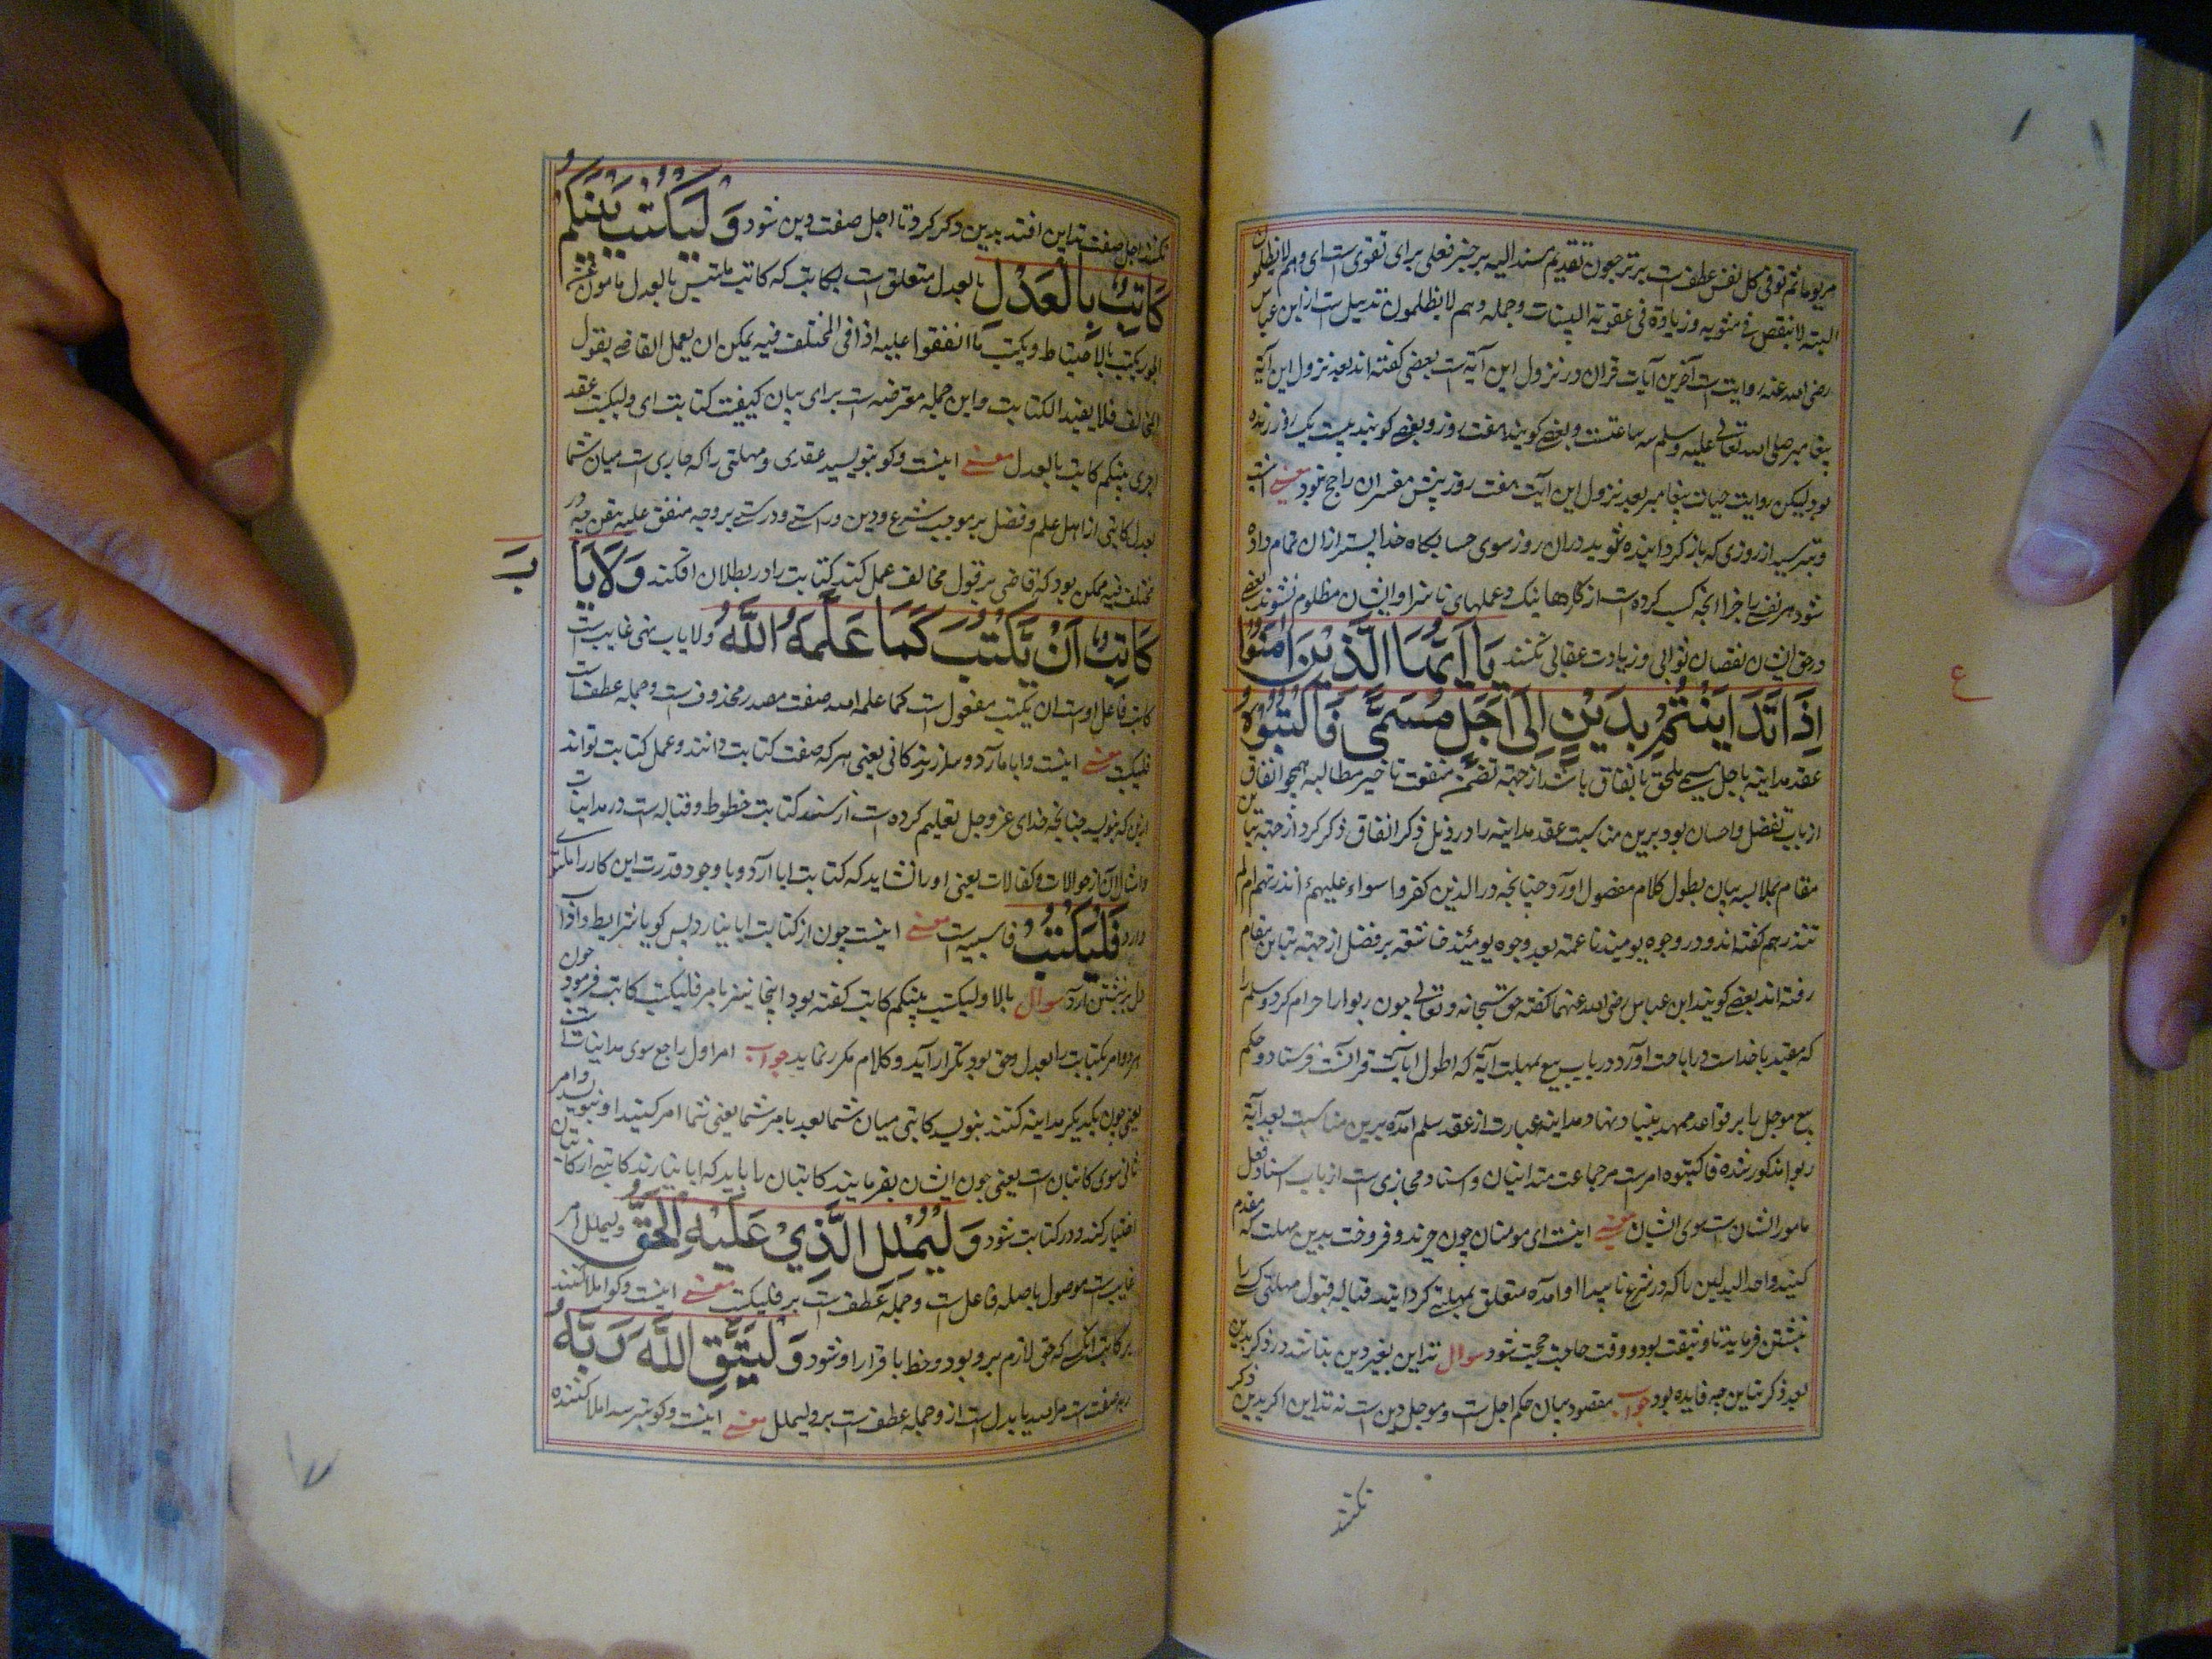 البته لا ینقص فی مثوبه وزیاده فی عقوبة السیئات وجمله وهم لا یظلمون تذییل است از ابن عباس
رضی الله عنه روایت است آخرین آیات قران در نزول این آیة است بعضی کفته اند بعد نزول این آیة
پیغامبر صلی الله تعالی علیه وسلم سه ساعت زیست وبعضی کویند هفت روز وبعضی کویند بیست یک روز زنده
بود لیکن روایت حیات پیغامبر بعد نزول این آیت هفت روز پیش مفسران راجح بود معنی اینست
وبترسید از روزی که باز کردانیده شوید دران روز سوی حسابکاه خدا پستر ازان تمام داده
شود هر نفس را جزا آنچه کسب کرده است از کارها نیک وعملهای ناسزا وایشان مظلوم نشوند یعنی
در حق ایشان نقصان ثوابی وزیادت عقابی نکنند یَا اَیُّهَا الَّذِیْنَ اٰمَنُوْا
اِذَا تَدَایَنْتُمْ بِدَیْنٍ اِلٰی اَجَلٍ مُسَمًّی فَاکْتُبُوْهُ
عقد مداینه باجل مسمی ملحق بانفاق باشد از جهة تضمن منفعت تاخیر مطالبه همچو انفاق
از باب تفضل واحسان بود برین مناسبت عقد مداینه را در ذیل ذکر انفاق ذکر کرد از جهة تباین
مقام بملابسه بیان بطول کلام مفصول آورد چنانچه در الذین کفروا سواء علیهم ءانذرتهم ام لم
تنذرهم کفته اند ودر وجوه یومئذ ناعمة بعد وجوه یومئذ خاشعة بر فصل از جهة تباین مقام
رفته اند بعضی کویند ابن عباس رضی الله عنهما کفته حق سبحانه وتعالی چون ربوا را حرام کرد وسلم را
که مقید باخذ است در اباحت آورد در باب بیع بمهلت آیة که اطول آیات قرانست فرستاد وحکم
بیع موجل را بر قواعد ممهد بنیاد نهاد ومداینه عبارت از عقد سلم آمده برین مناسبت بعد آیة
ربوا مذکور شده فاکتبوه امر است مر جماعت متداینان واسناد مجازی است از باب اسناد فعل
مامور ایشان است سوی ایشان معنی اینست ای مومنان چون خرید وفروخت بدین مهلت که مقدم
کنید واحد البدلین را که در شرع ناپیدا آمده متعلق بمهلتی کردانید قباله قبول مهلتی کسی را
نبشتن فرمایید تا وثیقت بود ووقت حاجت حجت شود سوال تداین بغیر دین نباشد در ذکر بدین
بعد ذکر تداین چه فایده بود جواب مقصود بیان حکم اجل است وموجل دین است نه تداین اکر بدین ذکر
نکنند
نکنند اجل صفت تداین افتد بدین ذکر کرد تا اجل صفت دین شود وَلْیَکْتُبْ بَیْنَکُمْ
کَاتِبٌ بِالْعَدْلِ بالعدل متعلق است بکاتب که کاتب ملتبس بالعدل مامون عن
الجور یکتب بالاحتیاط ویکتب ما اتفقوا علیه اذ فی المختلف فیه یمکن ان یعمل القاضی بقول
المخالف فلا یفید الکتابت واین جمله معترضه است برای بیان کیفیت کتابت ای ولیکتب عقد
اجری بینکم کاتب بالعدل معنی اینست وکو بنویسد عقدی ومهلتی را که جاری است میان شما
بعدل کاتبی از اهل علم وفضل بر موجب شرع ودین وراستی ودرستی بر وجه متفق علیه یقین چه در
مختلف فیه ممکن بود که قاضی بر قول مخالف عمل کند کتابت را در بطلان افکند وَلَا یَأْ
بَ
کَاتِبٌ اَنْ یَکْتُبَ کَمَا عَلَّمَهُ اللّٰهُ ولا یاب نهی غایب است
کاتب فاعل اوست ان یکتب مفعول است کما علمه الله صفت مصدر محذوف است وجمله عطف است
فلیکتب معنی اینست وابا مارد وسرنزند کاتبی یعنی هر که صفت کتابت دانند وعمل کتابت تواند
ازین که بنویسد چنانچه خدای عز وجل تعلیم کرده است از سند کتابت خطوط وقباله است در مداینات
وامثال آن از حوالات وکفالات یعنی او را نشاید که کتابت ابا آرد وبا وجود قدرت این کار را ملتوی
دارد فَلْیَکْتُبْ فا سببیه است معنی اینست چون از کتابت ابا نیارد پس کو با شرایط وآداب
دل بر نبشتن آرد سوال بالا ولیکتب بینکم کاتب کفته بود اینجا نیز بامر فلیکتب کاتب فرمود چون
هر دو امر بکتابت را بعدل وحق بود تکرار آید وکلام مکرر نماید جواب امر اول راجع سوی مداینان است
یعنی چون یکدیکر مداینه کنند بنویسد کاتبی میان شما بعدل بامر شما یعنی شما امر کنید او بنویسد وامر
ثانی سوی کاتبان است یعنی چون ایشان بفرمایند کاتبان را باید که ابا نیارند کاتبی از کاتبان
اختیار کند ودر کتابت شود وَلْیُمْلِلِ الَّذِیْ عَلَیْهِ الْحَقُّ ولیملل امر
غایب است موصول باصله فاعل است وجمله عطف است بر فلیکتب معنی اینست وکو املا کنند
بر کاتب آنکسی که حق لازم برو بود وخط باقرار او شود وَلْیَتَّقِ اللّٰهَ رَبَّهُ
ربه صفت است مر الله یا بدل است ازو وجمله عطف است بر ولیملل معنی اینست وکو بترسد املا کننده